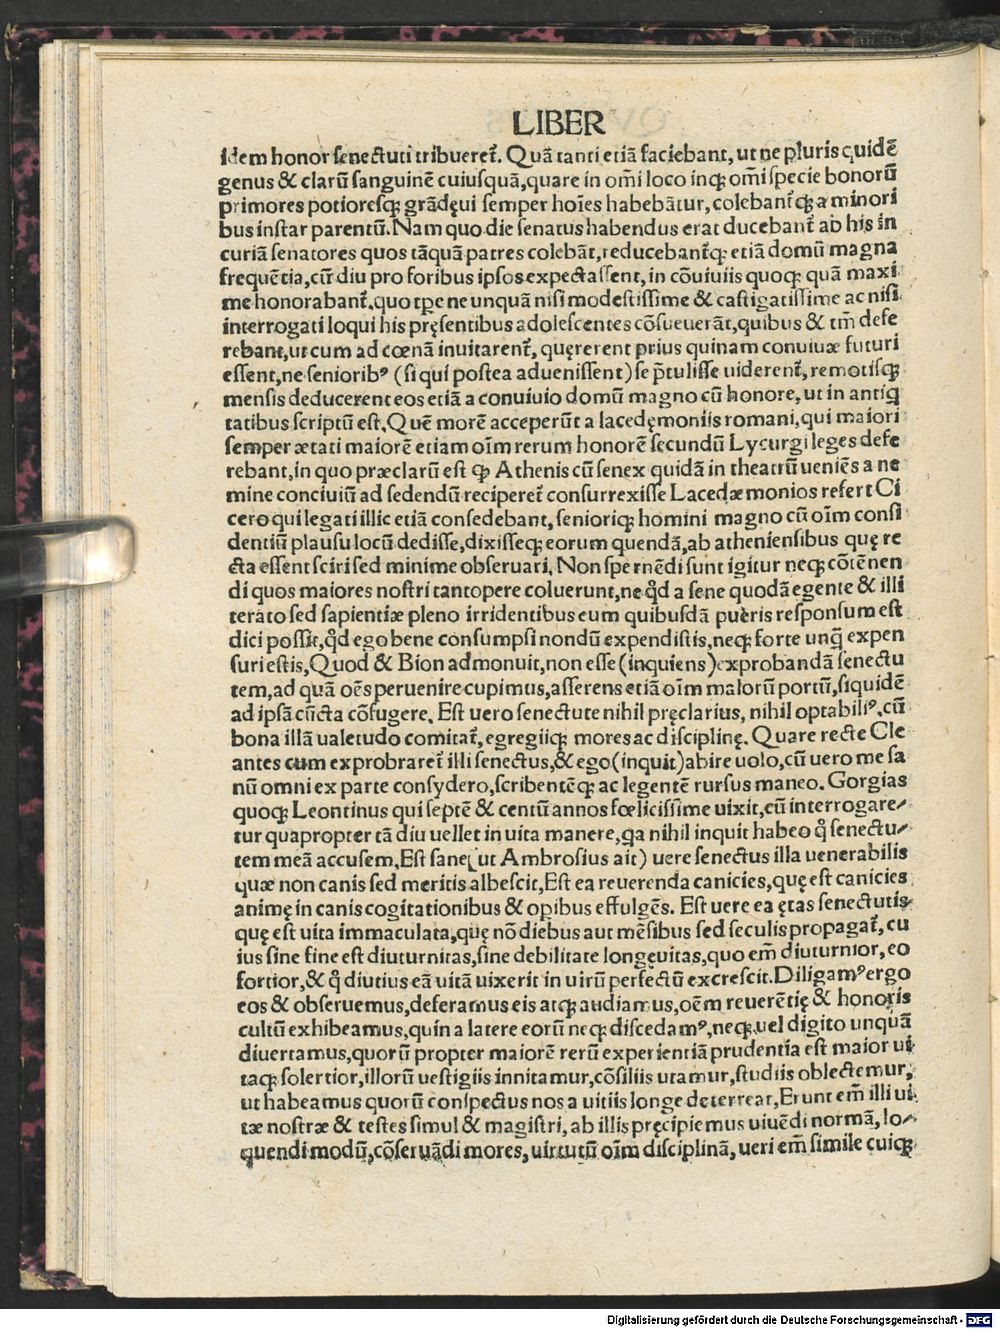 LIBER
idem honor senectuti tribueret̃. Quã tanti etiã faciebant, ut ne pluris quidẽ
genus & clarũ sanguinẽ cuiusquã, quare in om̃i loco inqꝫ om̃i specie bonorũ
primores potioresqꝫ grãdęui semper hoĩes habebãtur, colebant̃qꝫ a minori
bus instar parentũ. Nam quo die senatus habendus erat ducebant̃ ab his in
curiã senatores quos tãquã patres colebãt, reducebant̃qꝫ etiã domũ magna
frequẽtia, cũ diu pro foribus ipsos expectassent, in cõuiuiis quoqꝫ quã maxi
me honorabant̃, quo tꝑe ne unquã nisi modestissime & castigatissime ac nisi
interrogati loqui his pręsentibus adolescentes cõsueuerãt, quibus & tm̃ defe
rebant, ut cum ad cœnã inuitarent̃, quęrerent prius quinam conuiuæ futuri
essent, ne seniorib⁹ (si qui postea aduenissent) se p̃tulisse uiderent̃, remotisqꝫ
mensis deducerent eos etiã a conuiuio domũ magno cũ honore, ut in antiq̃
tatibus scriptũ est, Quẽ morẽ acceperũt a lacedęmoniis romani, qui maiori
semper ætati maiorẽ etiam oĩm rerum honorẽ secundũ Lycurgi leges defe
rebant, in quo præclarũ est ꝙ Athenis cũ senex quidã in theatrũ ueniẽs a ne
mine conciuiũ ad sedendũ reciperet̃ consurrexisse Lacedæmonios refert Ci
cero qui legati illic etiã consedebant, senioriqꝫ homini magno cũ oĩm consi
dentiũ plausu locũ dedisse, dixisseqꝫ eorum quendã, ab atheniensibus quę re
cta essent sciri sed minime obseruari. Non spernẽdi sunt igitur neqꝫ cõtẽnen
di quos maiores nostri tantopere coluerunt, ne qd̃ a sene quodã egente & illi
terato sed sapientiæ pleno irridentibus eum quibusdã pueris responsum est
dici possit, qd̃ ego bene consumpsi nondũ expendistis, neqꝫ forte unq̃ expen
suri estis, Quod & Bion admonuit, non esse (inquiens) exprobandã senectu
tem, ad quã oẽs peruenire cupimus, asserens etiã oĩm malorũ portũ, siquidẽ
ad ipsã cũcta cõfugere. Est uero senectute nihil pręclarius, nihil optabili⁹, cũ
bona illã ualetudo comitat̃, egregiiqꝫ mores ac disciplinę. Quare recte Cle
antes cum exprobraret̃ illi senectus, & ego (inquit) abire uolo, cũ uero me sa
nũ omni ex parte consydero, scribentẽqꝫ ac legentẽ rursus maneo. Gorgias
quoqꝫ Leontinus qui septẽ & centũ annos fœlicissime uixit, cũ interrogare⸗
tur quapropter tã diu uellet in uita manere, qa nihil inquit habeo q̃ senectu⸗
tem meã accusem. Est sane (ut Ambrosius ait) uere senectus illa uenerabilis
quæ non canis sed meritis albescit, Est ea reuerenda canicies, quę est canicies
animę in canis cogitationibus & opibus effulgẽs. Est uere ea ętas senectutis
quę est uita immaculata, quę nõ diebus aut mẽsibus sed seculis propagat̃, cu
ius sine fine est diuturnitas, sine debilitate longęuitas, quo em̃ diuturnior, eo
fortior, & q̃ diutius eã uitã uixerit in uirũ perfectũ excrescit. Diligam⁹ ergo
eos & obseruemus, deferamus eis atqꝫ audiamus, oẽm reuerẽtię & honoris
cultũ exhibeamus, quin a latere eorũ neqꝫ discedam⁹, neqꝫ uel digito unquã
diuertamus, quorũ propter maiorẽ rerũ experientiã prudentia est maior ui
taqꝫ solertior, illorũ uestigiis innitamur, cõsiliis utamur, studiis oblectemur,
ut habeamus quorũ conspectus nos a uitiis longe deterreat, Erunt em̃ illi ui
tæ nostræ & testes simul & magistri, ab illis pręcipiemus uiuẽdi normã, lo⸗
quendi modũ, cõseruãdi mores, uirtutũ oĩm disciplinã, ueri em̃ simile cuiqꝫ
Digitalisierung gefördert durch die Deutsche Forschungsgemeinschaft - DFG